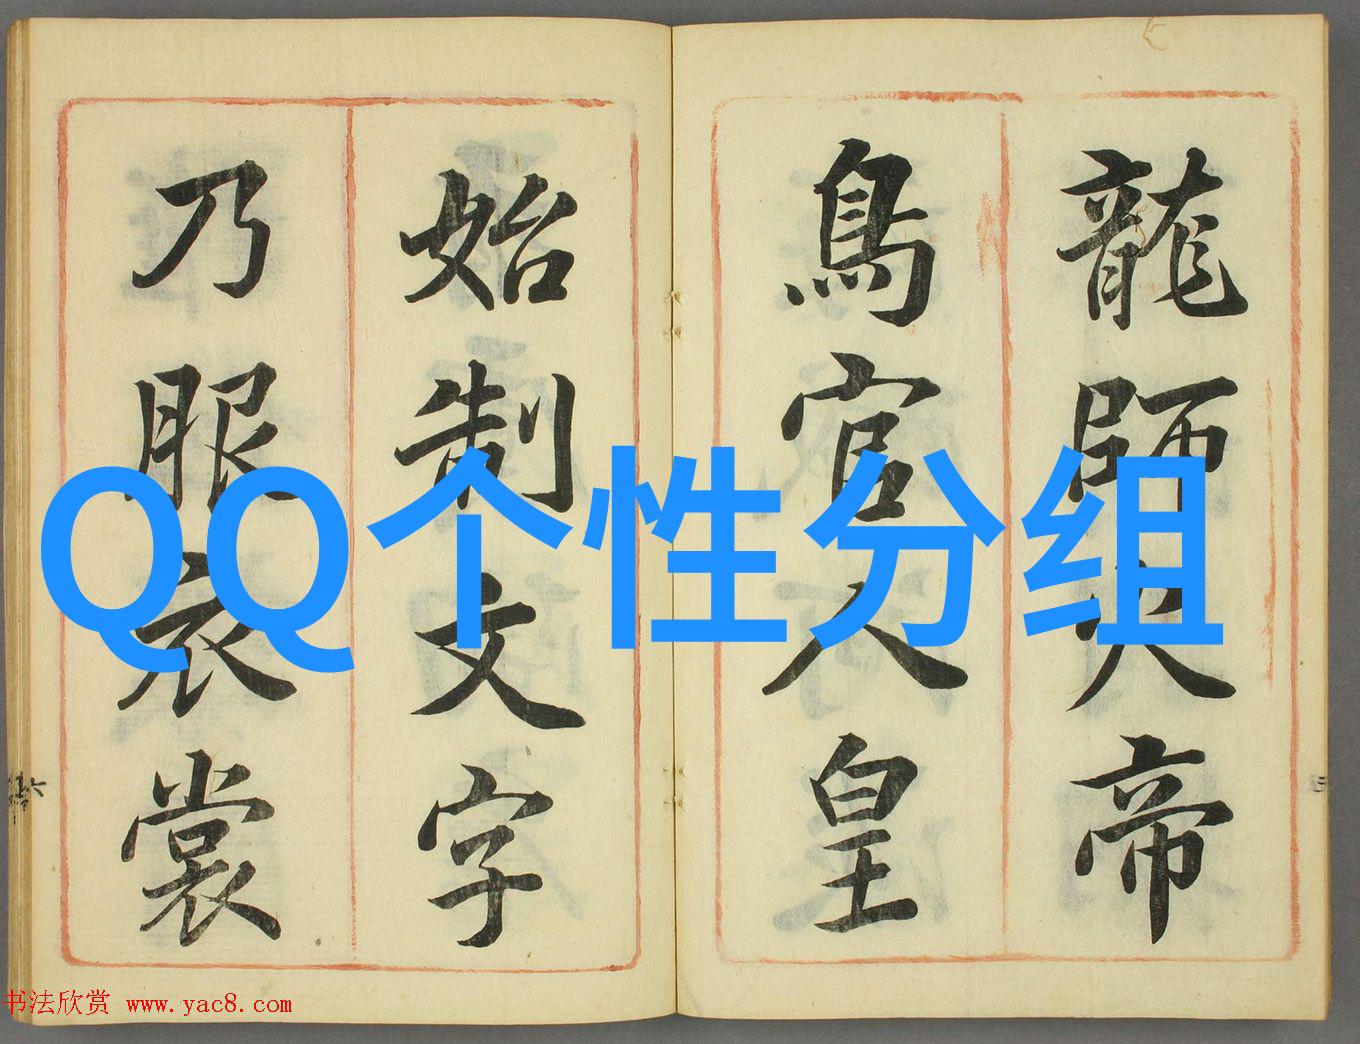 龍師火帝
鳥官人皇
始制文字
乃服衣裳
QQ个性分组
书法欣赏 www.yac8.com